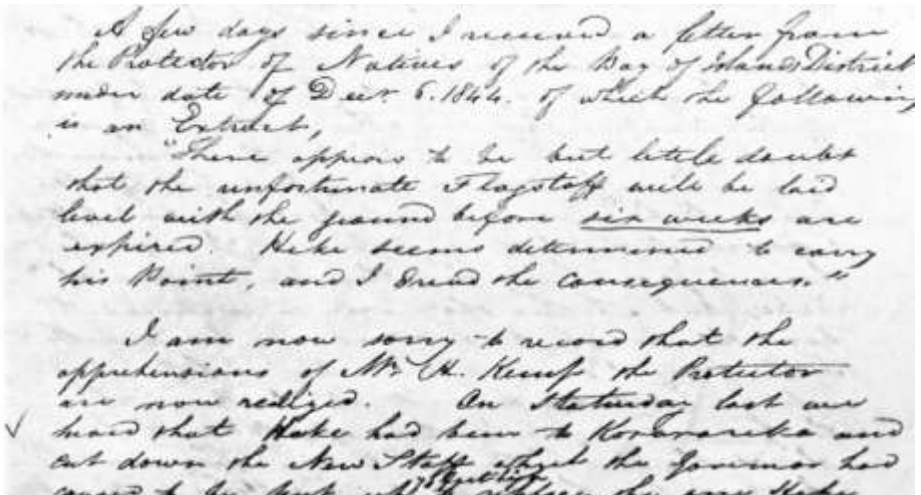 A few days since I received a letter from
the Protector of Natives of the Bay of Islands District
under date of Decr. 6. 1844. of which the following
is an Extract,
"There appears to be but little doubt
that the unfortunate Flagstaff will be laid
level with the ground before six weeks are
expired. Heke seems determined to carry
his Point, and I dread the consequences."
I am now sorry to record that the
apprehensions of Mr. H. Kemp the Protector
are now realized. On Saturday last we
heard that Heke had been to Kororareka and
cut down the New Staff which the Governor had
caused to be put up to replace the one Heke